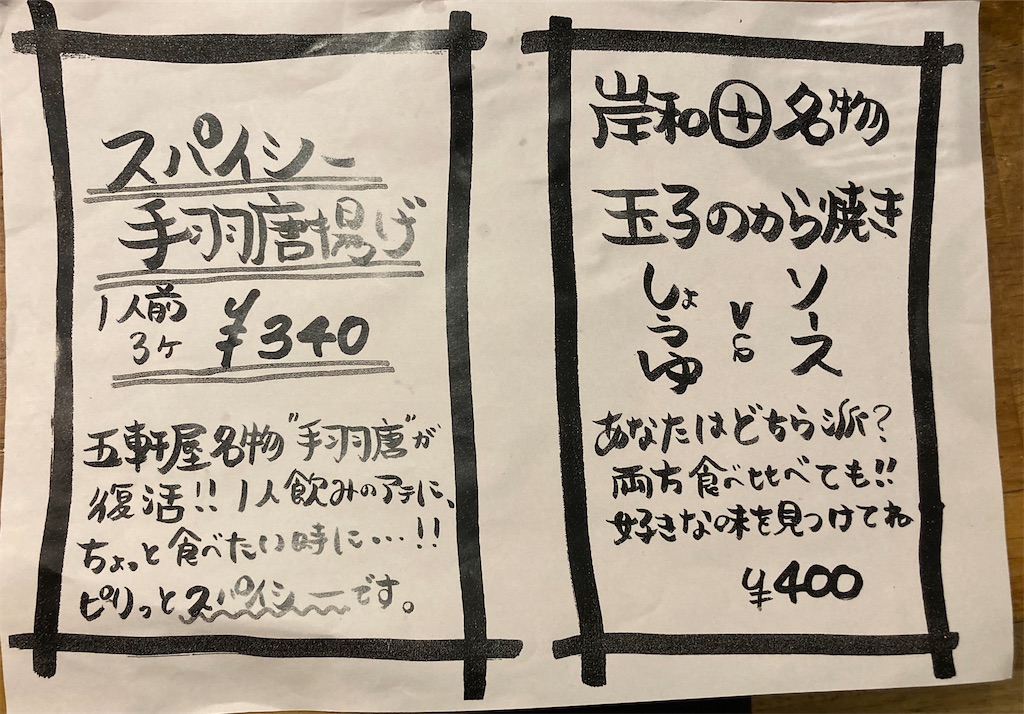 スパイシー
手羽唐揚げ
1人前
3ヶ
¥340
五軒屋名物"手羽唐"が
復活!! 1人飲みのアテに、
ちょっと食べたい時に…!!
ピリっとスパイシーです。
岸和田名物
玉子のから焼き
しょうゆ
VS
ソース
あなたはどちら派?
両方食べ比べても!!
好きなの味を見つけてね
¥400